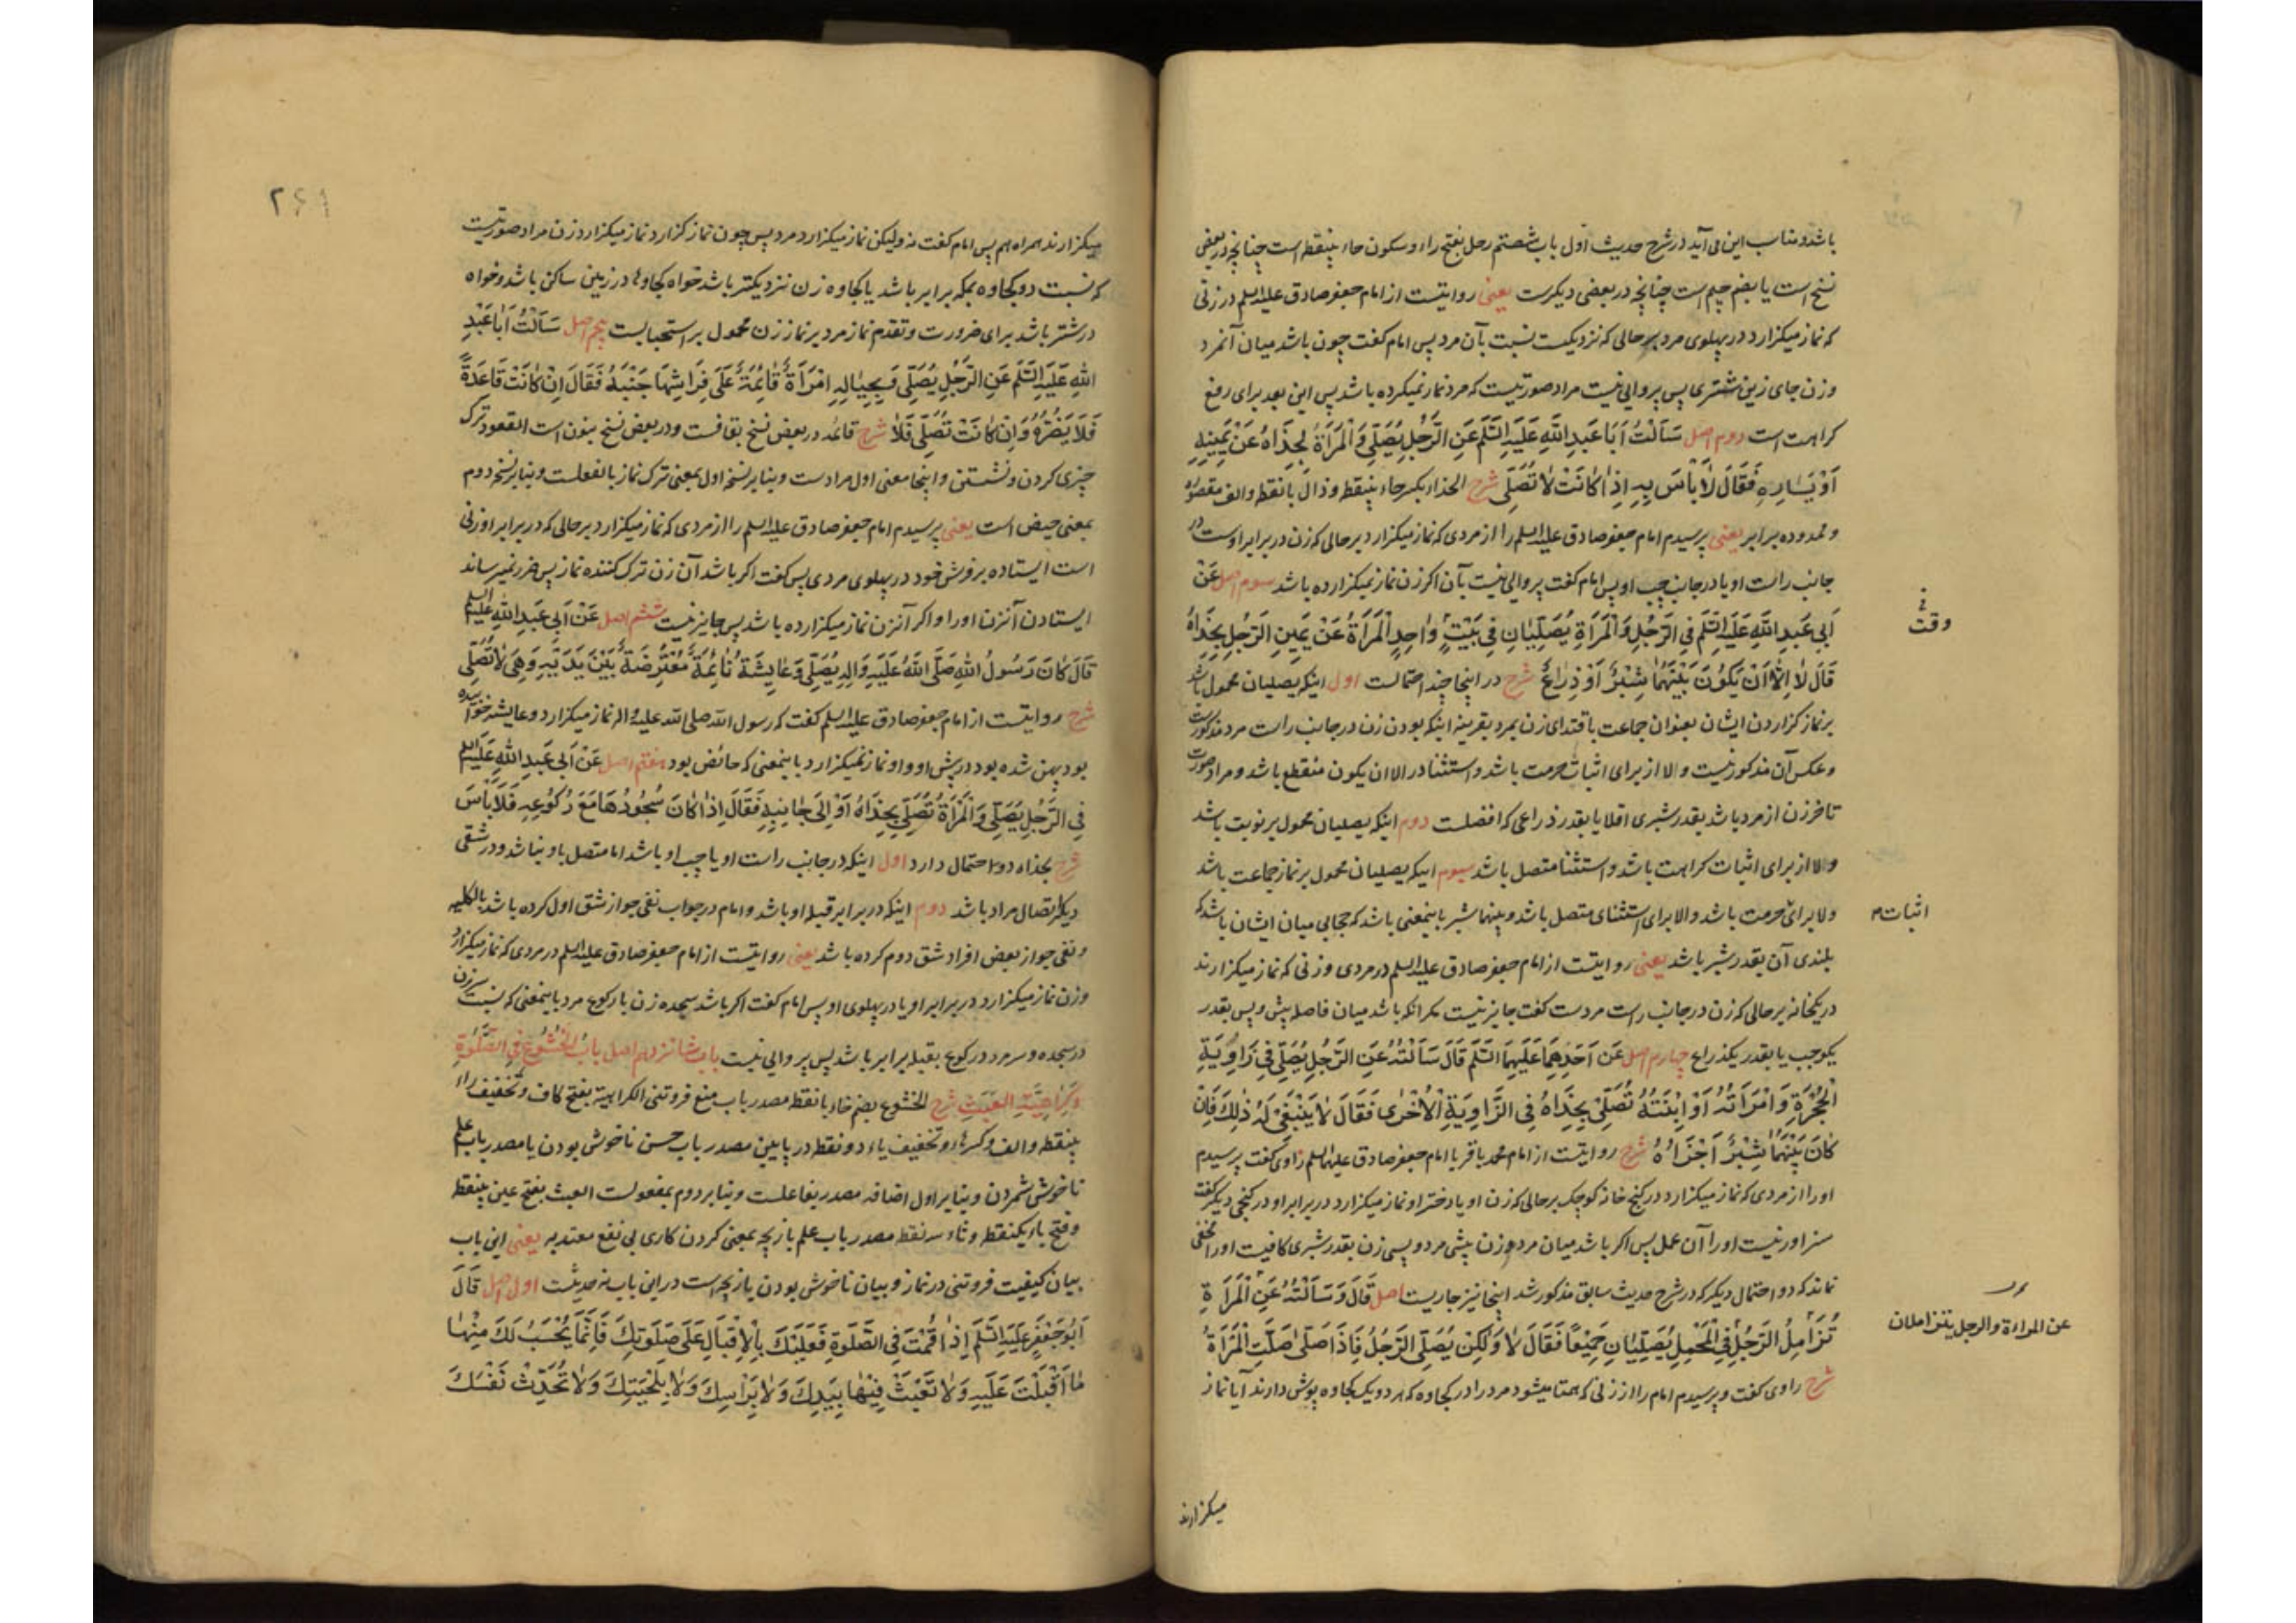 باشد و مناسب این می آید در شرح حدیث اول باب شصتم رحل بفتح راء و سکون حاء بینقطه است چنانچه در بعضی
نسخ است یا بضم جیم است چنانچه در بعضی دیگرست یعنی روایتست از امام جعفر صادق علیه السلم در زنی
که نماز میگزارد در پهلوی مرد بر حالی که نزدیکست نسبت بآن مرد پس امام گفت چون باشد میان آنمرد
و زن جای زین شتری پس پروایی نیست مراد صورتیست که مرد نماز نمیکرده باشد پس این بعد برای رفع
کراهت است دوم اصل سَاَلْتُ اَبَا عَبْدِ اللّٰهِ عَلَیْهِ السَّلَم عَنِ الرَّجُلِ یُصَلّٖی وَالْمَرْاَةُ بِحِذَاهُ عَنْ یَمٖینِهٖ
اَوْ یَسَارِهٖ فَقَالَ لٰا بَاْسَ بِهٖ اِذَا کَانَتْ لٰا تُصَلّٖی شرح الحذاء بکسر حاء بینقطه و ذال بانقطه و الف مقصوره
و ممدوده برابر یعنی پرسیدم امام جعفر صادق علیه السلم را از مردی که نماز میگزارد بر حالی که زن در برابر اوست در
جانب راست او یا در جانب چپ او پس امام گفت پروایی نیست بآن اگر زن نماز نمیگزارده باشد سوم اصل عَنْ
اَبٖی عَبْدِ اللّٰهِ عَلَیْهِ السَّلَم فِی الرَّجُلِ وَالْمَرْاَةِ یُصَلِّیَانِ فٖی بَیْتٍ وَاحِدٍ الْمَرْاَةُ عَنْ یَمٖینِ الرَّجُلِ بِحِذَاهُ
وقت
قَالَ لٰا اِلّٰا اَنْ یَکُونَ بَیْنَهُمَا شِبْرٌ اَوْ ذِرَاعٌ شرح در اینجا چند احتمالست اول اینکه یصلیان محمول باشد
بر نماز گزاردن ایشان بعنوان جماعت باقتدای زن بمرد بقرینه اینکه بودن زن در جانب راست مرد مذکورست
و عکس آن مذکور نیست و الا از برای اثبات حرمت باشد و استثنا در الا ان یکون منقطع باشد و مراد صورت
تاخر زن از مرد باشد بقدر شبری اقلا یا بقدر ذراعی که افضلست دوم اینکه یصلیان محمول بر نوبت باشد
و الا از برای اثبات کراهت باشد و استثنا متصل باشد سیوم اینکه یصلیان محمول بر نماز جماعت باشد
و لا برای حرمت باشد و الا برای استثنای متصل باشد و بینهما شبر باینمعنی باشد که حجابی میان ایشان باشد که
اثبات
بلندی آن بقدر شبر باشد یعنی روایتست از امام جعفر صادق علیه السلم در مردی و زنی که نماز میگزارند
در یکخانه بر حالی که زن در جانب راست مردست گفت جایز نیست مگر انکه باشد میان فاصله پیش و پس بقدر
یکوجب یا بقدر یکذراع چهارم اصل عَنْ اَحَدِهِمَا عَلَیْهِمَا السَّلَم قَالَ سَاَلْتُهُ عَنِ الرَّجُلِ یُصَلّٖی فٖی زَاوِیَةِ
الْحُجْرَةِ وَامْرَاَتُهُ اَوِ ابْنَتُهُ تُصَلّٖی بِحِذَاهُ فِی الزَّاوِیَةِ الْاُخْرٰی فَقَالَ لٰا یَنْبَغٖی لَهُ ذٰلِکَ فَاِنْ
کَانَ بَیْنَهُمَا شِبْرٌ اَجْزَاَهُ شرح روایتست از امام محمد باقر یا امام جعفر صادق علیهما السلم راوی گفت پرسیدم
او را از مردی که نماز میگزارد در کنج خانه کوچک بر حالی که زن او یا دختر او نماز میگزارد در برابر او در کنجی دیگر گفت
سزاور نیست او را آن عمل پس اگر باشد میان مرد و زن پیشی مرد و پسی زن بقدر شبری کافیست او را مخفی
نماند که دو احتمال دیگر که در شرح حدیث سابق مذکور شد اینجا نیز جاریست اصل قَالَ وَسَاَلْتُهُ عَنِ الْمَرْاَةِ
تُزَامِلُ الرَّجُلَ فِی الْمَحْمِلِ یُصَلِّیَانِ جَمٖیعًا فَقَالَ لٰا وَلٰکِنْ یُصَلِّی الرَّجُلُ فَاِذَا صَلّٰی صَلَّتِ الْمَرْاَةُ
عن المراءة والرجل یتزاملان
شرح راوی گفت و پرسیدم امام را از زنی که همتا میشود مرد را در کجاوه که هر دو یک کجاوه پوش دارند آیا نماز
میگزارند
۲۶۱
میگزارند همراه هم پس امام گفت نه ولیکن نماز میگزارد مرد پس چون نماز گزارد نماز میگزارد زن مراد صورتیست
که نسبت دو کجاوه بمکه برابر باشد یا کجاوه زن نزدیکتر باشد خواه کجاوها در زمین ساکن باشد و خواه
در شتر باشد برای ضرورت و تقدم نماز مرد بر نماز زن محمول بر استحبابست پنجم اصل سَاَلْتُ اَبَا عَبْدِ
اللّٰهِ عَلَیْهِ السَّلَم عَنِ الرَّجُلِ یُصَلّٖی وَبِحِیَالِهٖ امْرَاَةٌ قَائِمَةٌ عَلٰی فِرَاشِهَا جَنْبَهُ فَقَالَ اِنْ کَانَتْ قَاعِدَةً
فَلَا یَضُرُّهُ وَاِنْ کَانَتْ تُصَلّٖی فَلٰا شرح قائمه در بعض نسخ بقافست و در بعض نسخ بنون است القعود ترک
چیزی کردن و نشستن و اینجا معنی اول مرادست و بنابر نسخه اول بمعنی ترک نماز بالفعلست و بنابر نسخه دوم
بمعنی حیض است یعنی پرسیدم امام جعفر صادق علیه السلم را از مردی که نماز میگزارد بر حالی که در برابر او زنی
است ایستاده بر فرش خود در پهلوی مردی پس گفت اگر باشد آن زن ترک کننده نماز پس ضرر نمیرساند
ایستادن آنزن او را و اگر آنزن نماز میگزارده باشد پس جایز نیست ششم اصل عَنْ اَبٖی عَبْدِ اللّٰهِ عَلَیْهِ السلم
قَالَ کَانَ رَسُولُ اللّٰهِ صَلَّی اللّٰهُ عَلَیْهِ وَاٰلِهٖ یُصَلّٖی وَعَایِشَةُ نَائِمَةٌ مُعْتَرِضَةٌ بَیْنَ یَدَیْهِ وَهِیَ لٰا تُصَلّٖی
شرح روایتست از امام جعفر صادق علیه السلم گفت که رسول الله صلی الله علیه و اله نماز میگزارد و عایشه خوابیده
بود پهن شده بود در پیش او و او نماز نمیگزارد باینمعنی که حائض بود هفتم اصل عَنْ اَبٖی عَبْدِ اللّٰهِ عَلَیْهِ السلم
فِی الرَّجُلِ یُصَلّٖی وَالْمَرْاَةُ تُصَلّٖی بِحِذَاهُ اَوْ اِلٰی جَانِبِهٖ فَقَالَ اِذَا کَانَ سُجُودُهَا مَعَ رُکُوعِهٖ فَلَا بَاْسَ
شرح بحذاه دو احتمال دارد اول اینکه در جانب راست او یا چپ او باشد اما متصل باو نباشد و در شقی
دیگر اتصال مراد باشد دوم اینکه در برابر قبله او باشد و امام در جواب نفی جواز شق اول کرده باشد بالکلیه
و نفی جواز بعض افراد شق دوم کرده باشد یعنی روایتست از امام جعفر صادق علیه السلم در مردی که نماز میگزارد
و زن نماز میگزارد در برابر او یا در پهلوی او پس امام گفت اگر باشد سجده زن با رکوع مرد باینمعنی که نسبت سر زن
در سجده و سر مرد در رکوع بقبله برابر باشد پس پروایی نیست باب شانزدهم اصل بَابُ الْخُشُوعِ فِی الصَّلٰوةِ
وَکَرَاهِیَةِ الْعَبَثِ شرح الخشوع بضم خاء بانقطه مصدر باب منع فروتنی الکراهیة بفتح کاف و تخفیف راء
بینقطه و الف و کسر هاء و تخفیف یاء دو نقطه در پایین مصدر باب حسن ناخوش بودن یا مصدر باب علم
ناخوش شمردن و بنابر اول اضافه مصدر بفاعلست و بنابر دوم بمفعولست العبث بفتح عین بینقطه
و فتح باء یکنقطه و ثاء سه نقطه مصدر باب علم بازیچه بمعنی کردن کاری بی نفع معتد به یعنی این باب
بیان کیفیت فروتنی در نماز و بیان ناخوش بودن بازیچه است در این باب نه حدیثست اول اصل قَالَ
اَبُو جَعْفَرٍ عَلَیْهِ السَّلَم اِذَا قُمْتَ فِی الصَّلٰوةِ فَعَلَیْکَ بِالْاِقْبَالِ عَلٰی صَلٰوتِکَ فَاِنَّمَا یُحْسَبُ لَکَ مِنْهَا
مَا اَقْبَلْتَ عَلَیْهِ وَلٰا تَعْبَثْ فٖیهَا بِیَدِکَ وَلٰا بِرَاْسِکَ وَلٰا بِلِحْیَتِکَ وَلٰا تُحَدِّثْ نَفْسَکَ